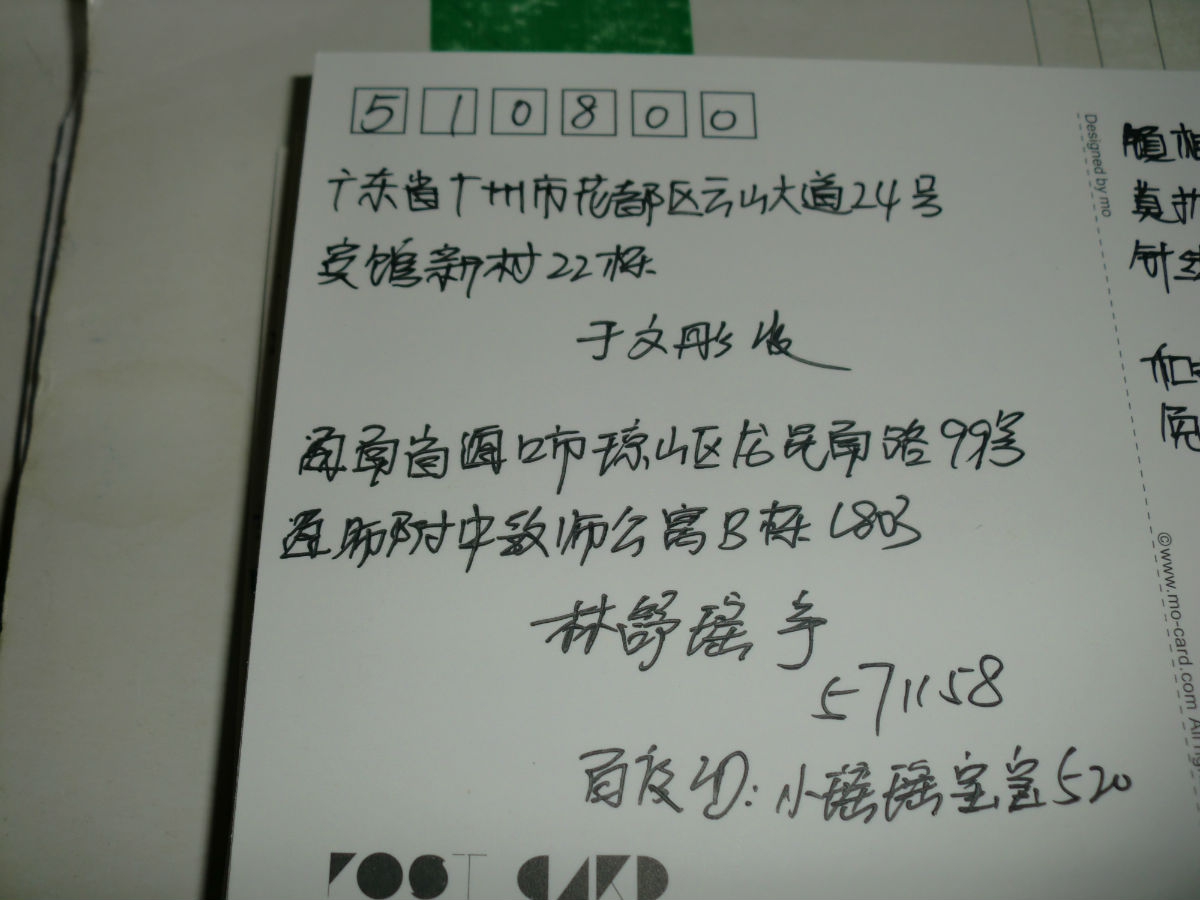 510800
广东省广州市花都区云山大道24号
宾馆新村22栋
于文彤 收
海南省海口市琼山区龙昆南路99号
海师附中教师公寓B栋1803
林舒瑶 寄
571158
百度ID:小瑶瑶宝宝520
POST CARD
Designed by mo
©www.mo-card.com All rig
真
针线